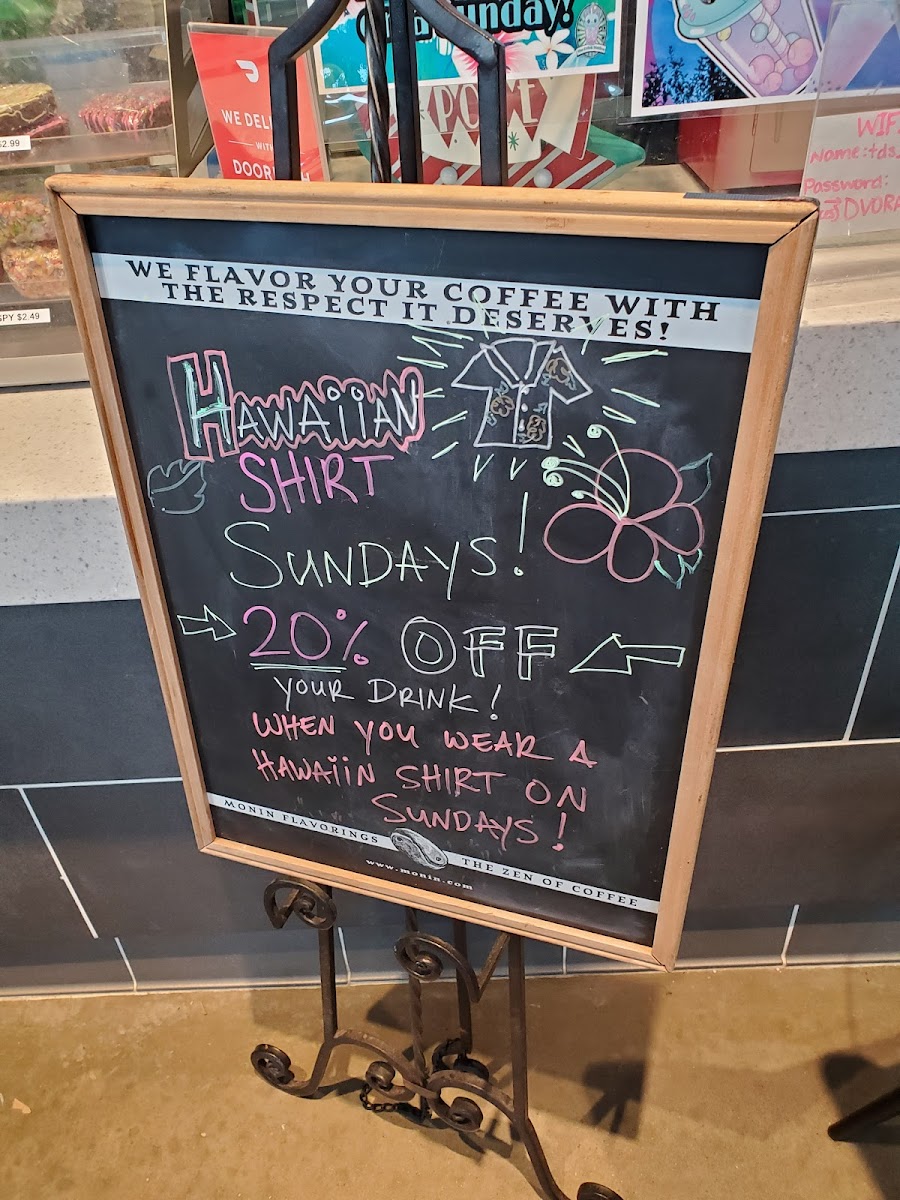 Sunday!
WE DEL
WITH
DOOR
$2.99
WIF
Name: tds
Password:
DVORA
SPY $2.49
WE FLAVOR YOUR COFFEE WITH
THE RESPECT IT DESERVES!
HAWAIIAN
SHIRT
SUNDAYS!
20% OFF
YOUR DRINK!
WHEN YOU WEAR A
HAWAIIN SHIRT ON
SUNDAYS!
MONIN FLAVORINGS THE ZEN OF COFFEE
www.monin.com